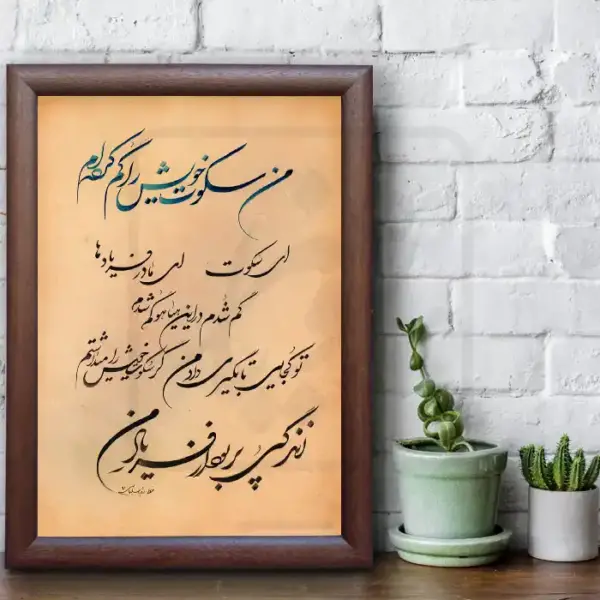 من سکوت خویش را گم کرده‌ام
ای سکوت ای مادر فریادها
گم شدم در این هیاهو گم شدم
تو کجایی تا بگیری داد من گر سکوت خویش را میداشتم
زندگی پر بود از فریاد من